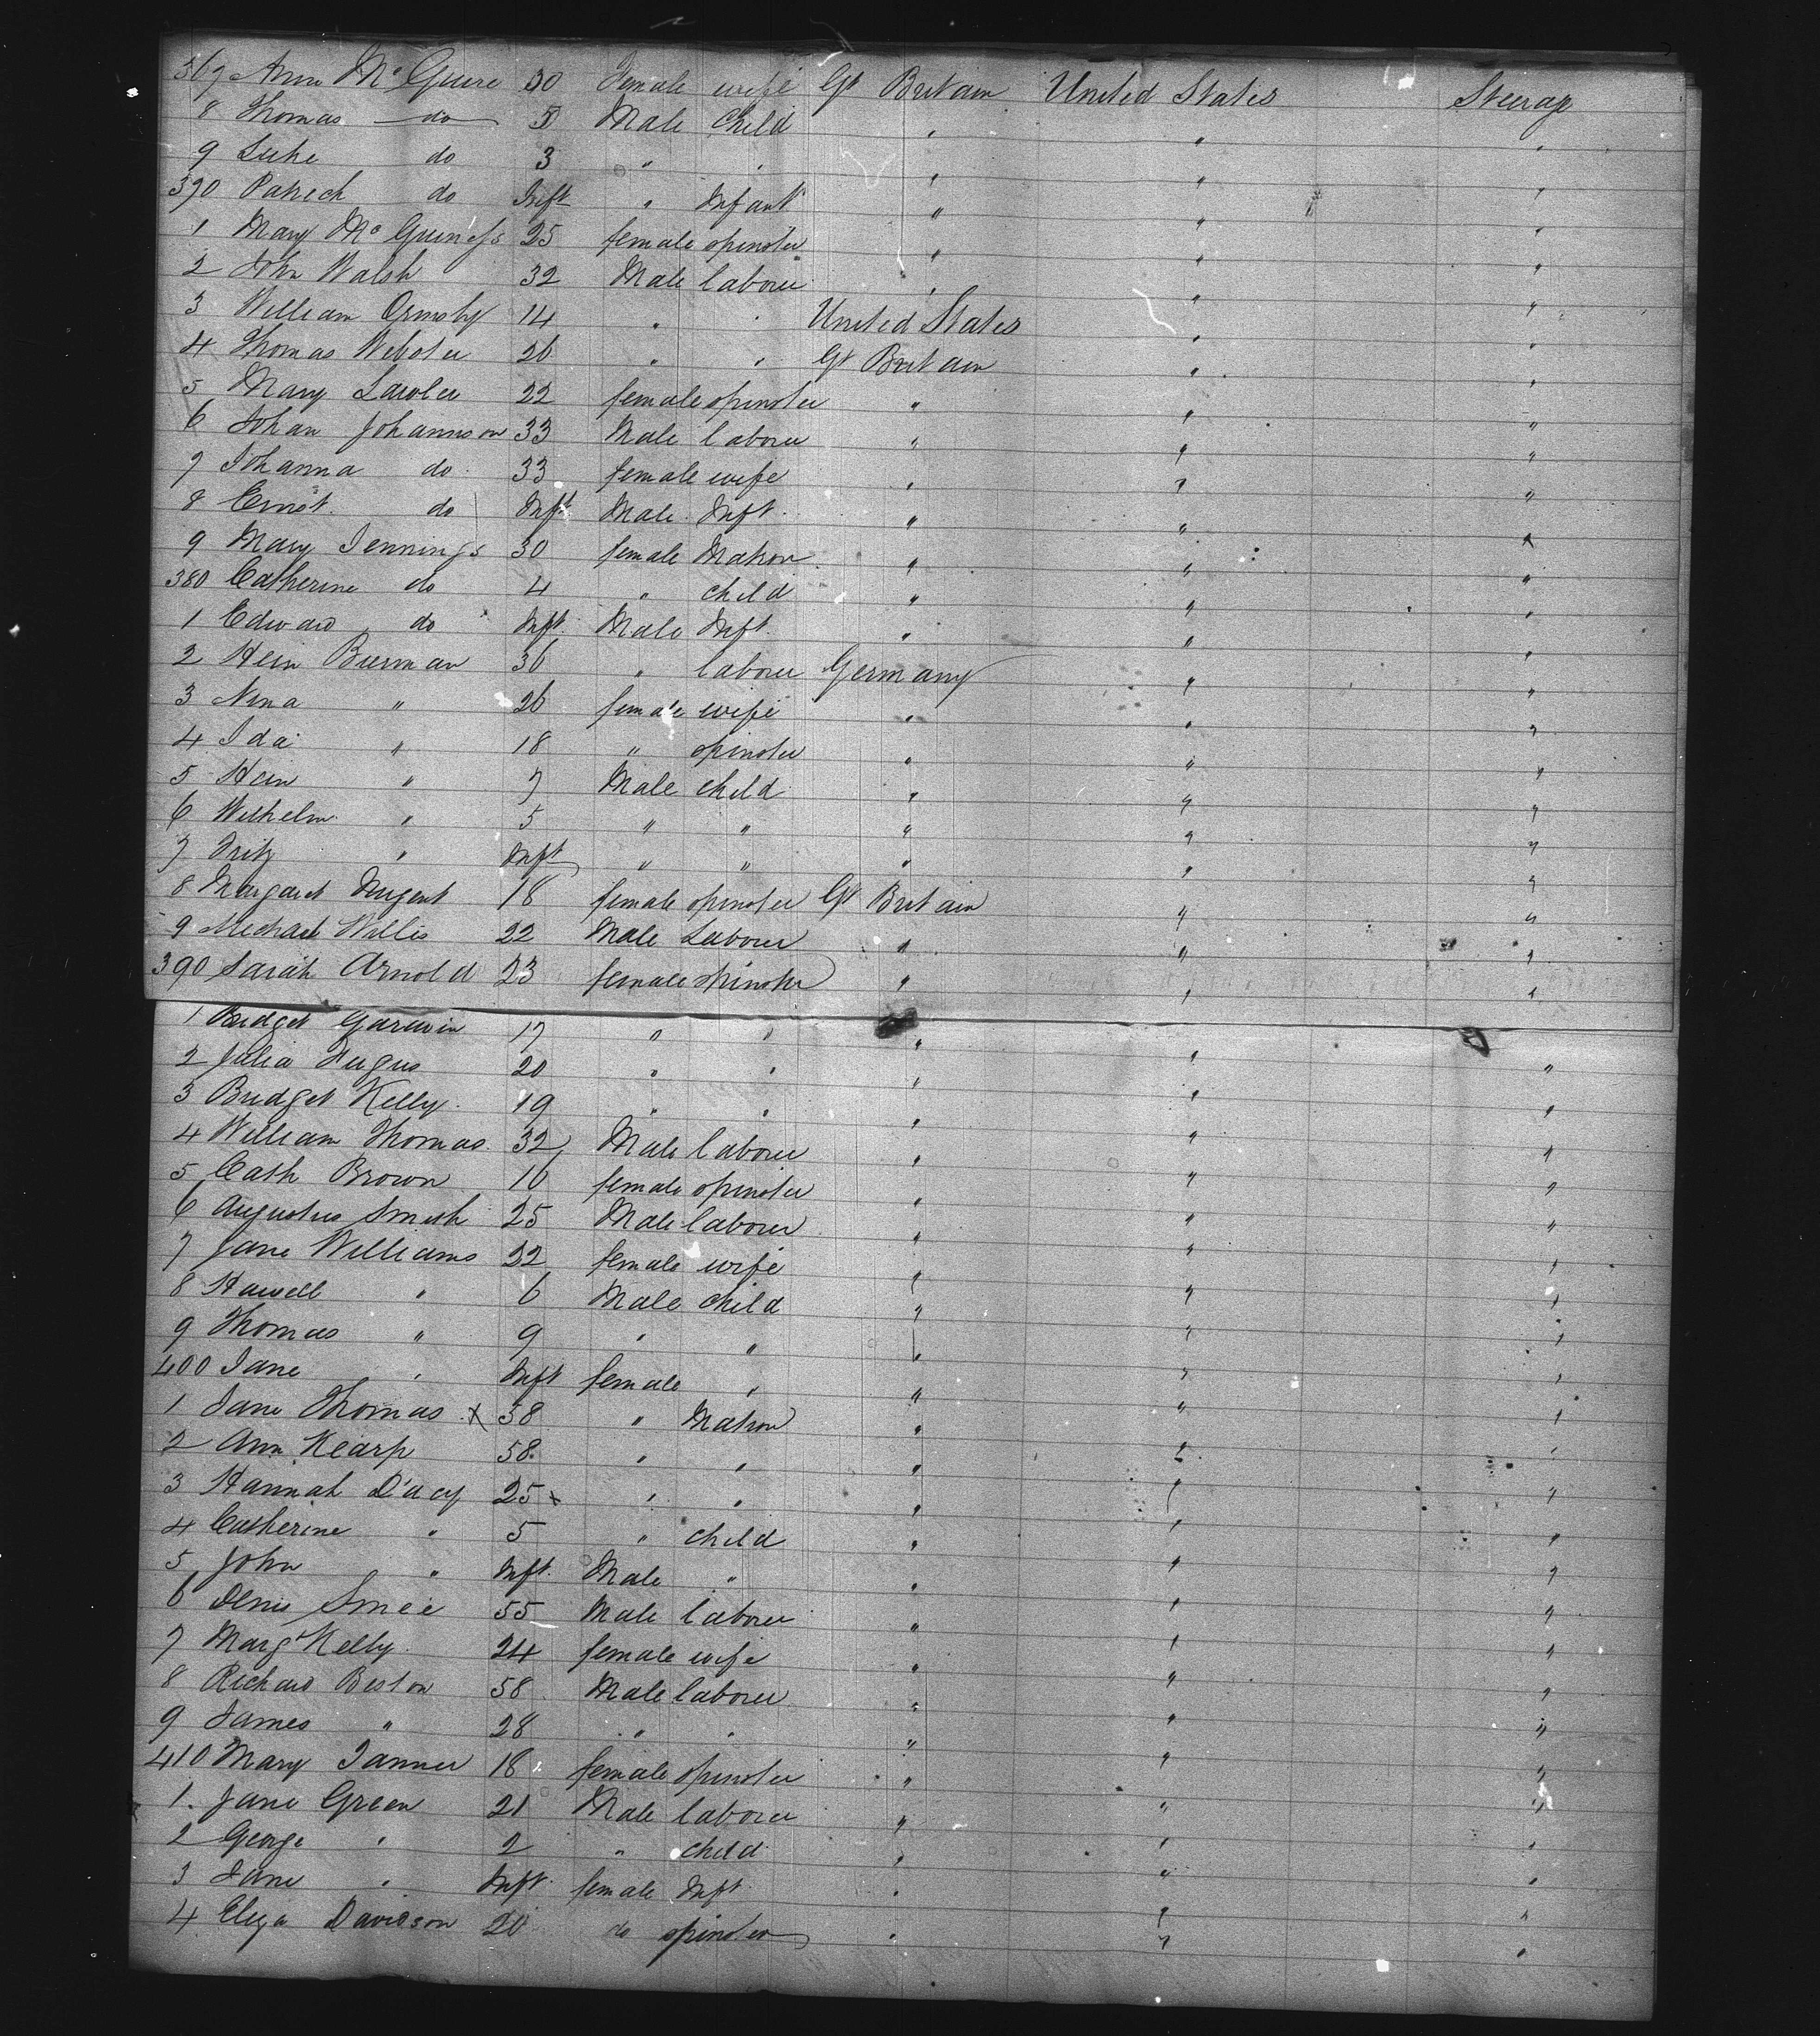 367 Ann McGuire 30 Female wife Gt Britain United States Steerage
8 Thomas do 5 Male Child " " "
9 Luke do 3 " " " " "
370 Patrick do Inft " Infant " " "
1 Mary McGuiness 25 female spinster " " "
2 John Walsh 32 Male laborer " " "
3 William Ormsby 14 " " United States " "
4 Thomas Webster 26 " " Gt Britain " "
5 Mary Lawler 22 female spinster " " "
6 Johan Johannson 33 Male laborer " " "
7 Johanna do 33 female wife " " "
8 Ernst do Inft Male Inft " " "
9 Mary Jennings 30 female Matron " " "
380 Catherine do 4 " child " " "
1 Edward do Inft Male Inft " " "
2 Hein Burman 36 " laborer Germany " "
3 Nina " 26 female wife " " "
4 Ida " 18 " spinster " " "
5 Hein " 7 Male child " " "
6 Wilhelm " 5 " " " " "
7 Fritz " Inft " " " " "
8 Margaret Nugent 18 female spinster Gt Britain " "
9 Michael Willis 22 Male Laborer " " "
390 Sarah Arnold 23 female spinster " " "
1 Bridget Garwin 17 " " " " "
2 Julia Fugus 20 " " " " "
3 Bridget Kelly 19 " " " " "
4 William Thomas 32 Male laborer " " "
5 Cath Brown 16 female spinster " " "
6 Augustus Smith 25 Male laborer " " "
7 Jane Williams 32 female wife " " "
8 Hawell " 6 Male child " " "
9 Thomas " 9 " " " " "
400 Jane " Inft female " " " "
1 Jane Thomas x 38 " Matron " " "
2 Ann Kearp 58 " " " " "
3 Hannah D'acy 25 x " " " " "
4 Catherine " 5 " child " " "
5 John " Inft Male " " " "
6 Denis Smee 55 Male laborer " " "
7 Margt Kelly 24 female wife " " "
8 Richard Beston 58 Male laborer " " "
9 James " 28 " " " " "
410 Mary Tanner 18 female spinster " " "
1 Jane Green 21 Male laborer " " "
2 George " 2 " child " " "
3 Jane " Inft female Inft " " "
4 Eliza Davidson 20 do spinster " " "